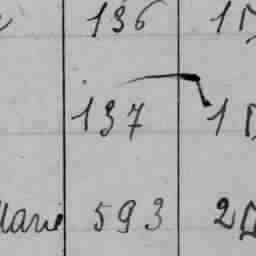 136 1
137 1
Marie 593 2